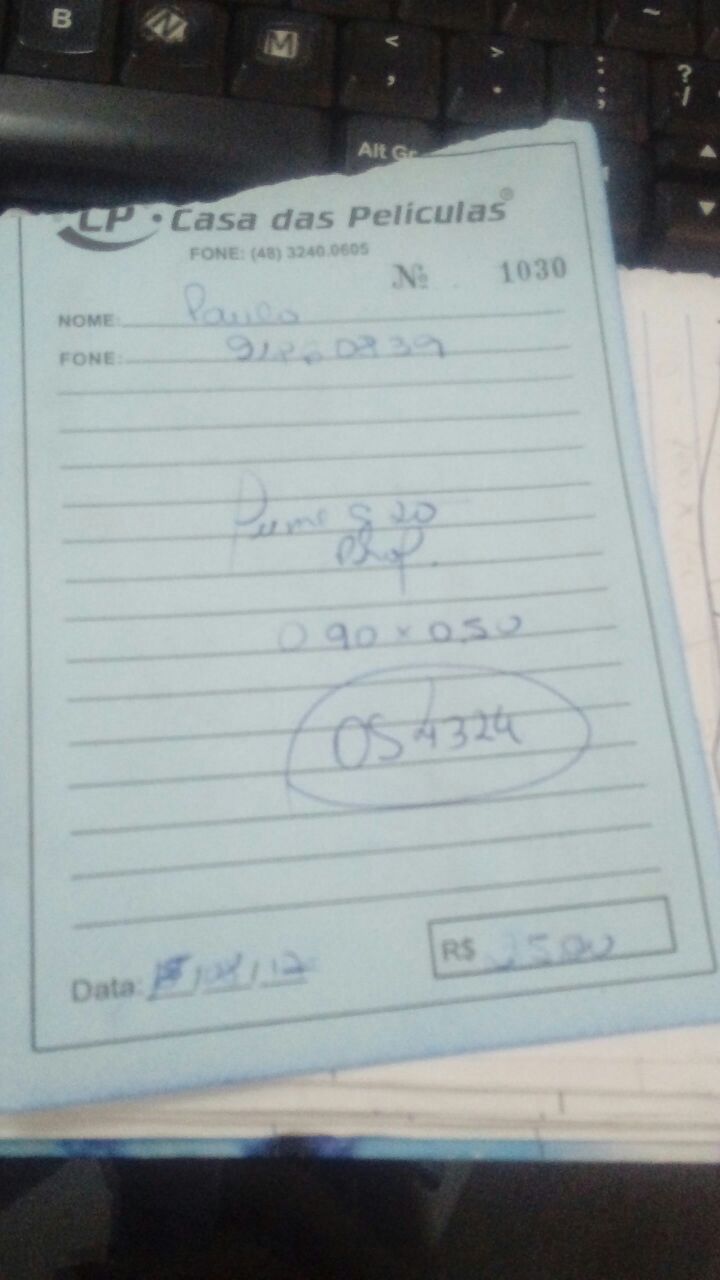 B N M < , > . : ; ? /
Alt Gr
CP • Casa das Películas®
FONE: (48) 3240.0605
Nº 1030
NOME: Paulo
FONE:
G 20
0 90 x 0,50
OS 4324
R$ 25,00
Data: /08/17